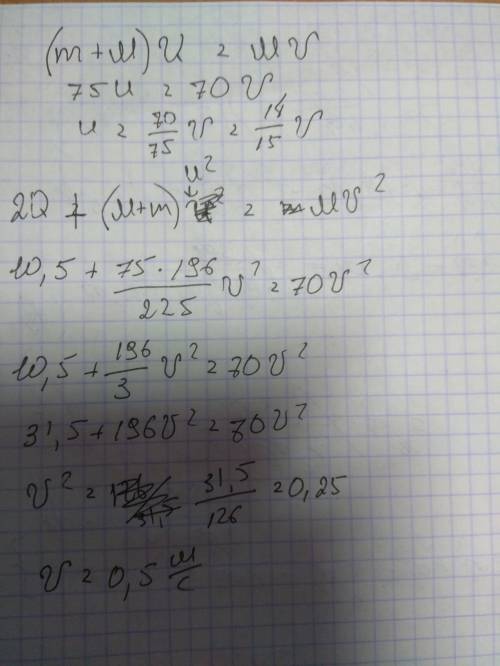 (m + M) u = M v
75 u = 70 v
u = 70/75 v = 14/15 v
u²
2Q + (M+m) = M v²
10,5 + 75 · 196 / 225 v² = 70 v²
10,5 + 196/3 v² = 70 v²
31,5 + 196 v² = 70 v²
v² = 31,5/126 = 0,25
v = 0,5 м/с